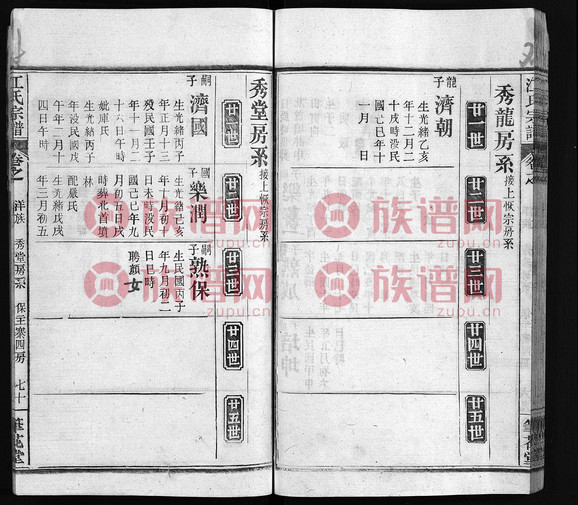 秀龍房系 接上恢宗房系
廿一世
廿二世
廿三世
廿四世
廿五世
龍子 濟朝
生光緒乙亥
年十二月二
十戌時没民
國己巳年十
一月 日
秀堂房系 接上恢宗房系
廿一世
廿二世
廿三世
廿四世
廿五世
嗣子 濟國
生光緒丙子
年正月十三
殁民國壬子
年十一月二
十六日午時
妣庫氏
生光緒丙子
年没民國戊
午年二月十
四日午時
國子 樂潤
生光緒己亥
年十月初二
日未時没民
國己巳年九
月初五日戌
時葬北首墳
林
配嚴氏
生光緒戊戌
年三月初五
嗣子 熟保
生民國丙子
年九月初二
日巳時
女 聘顏
江氏宗譜
卷之
祥族
秀堂房系
保王寨四房
七十
筆花堂
族谱网
zupu.cn
族谱网
zupu.cn
族谱网
zupu.cn
族谱网
zupu.cn